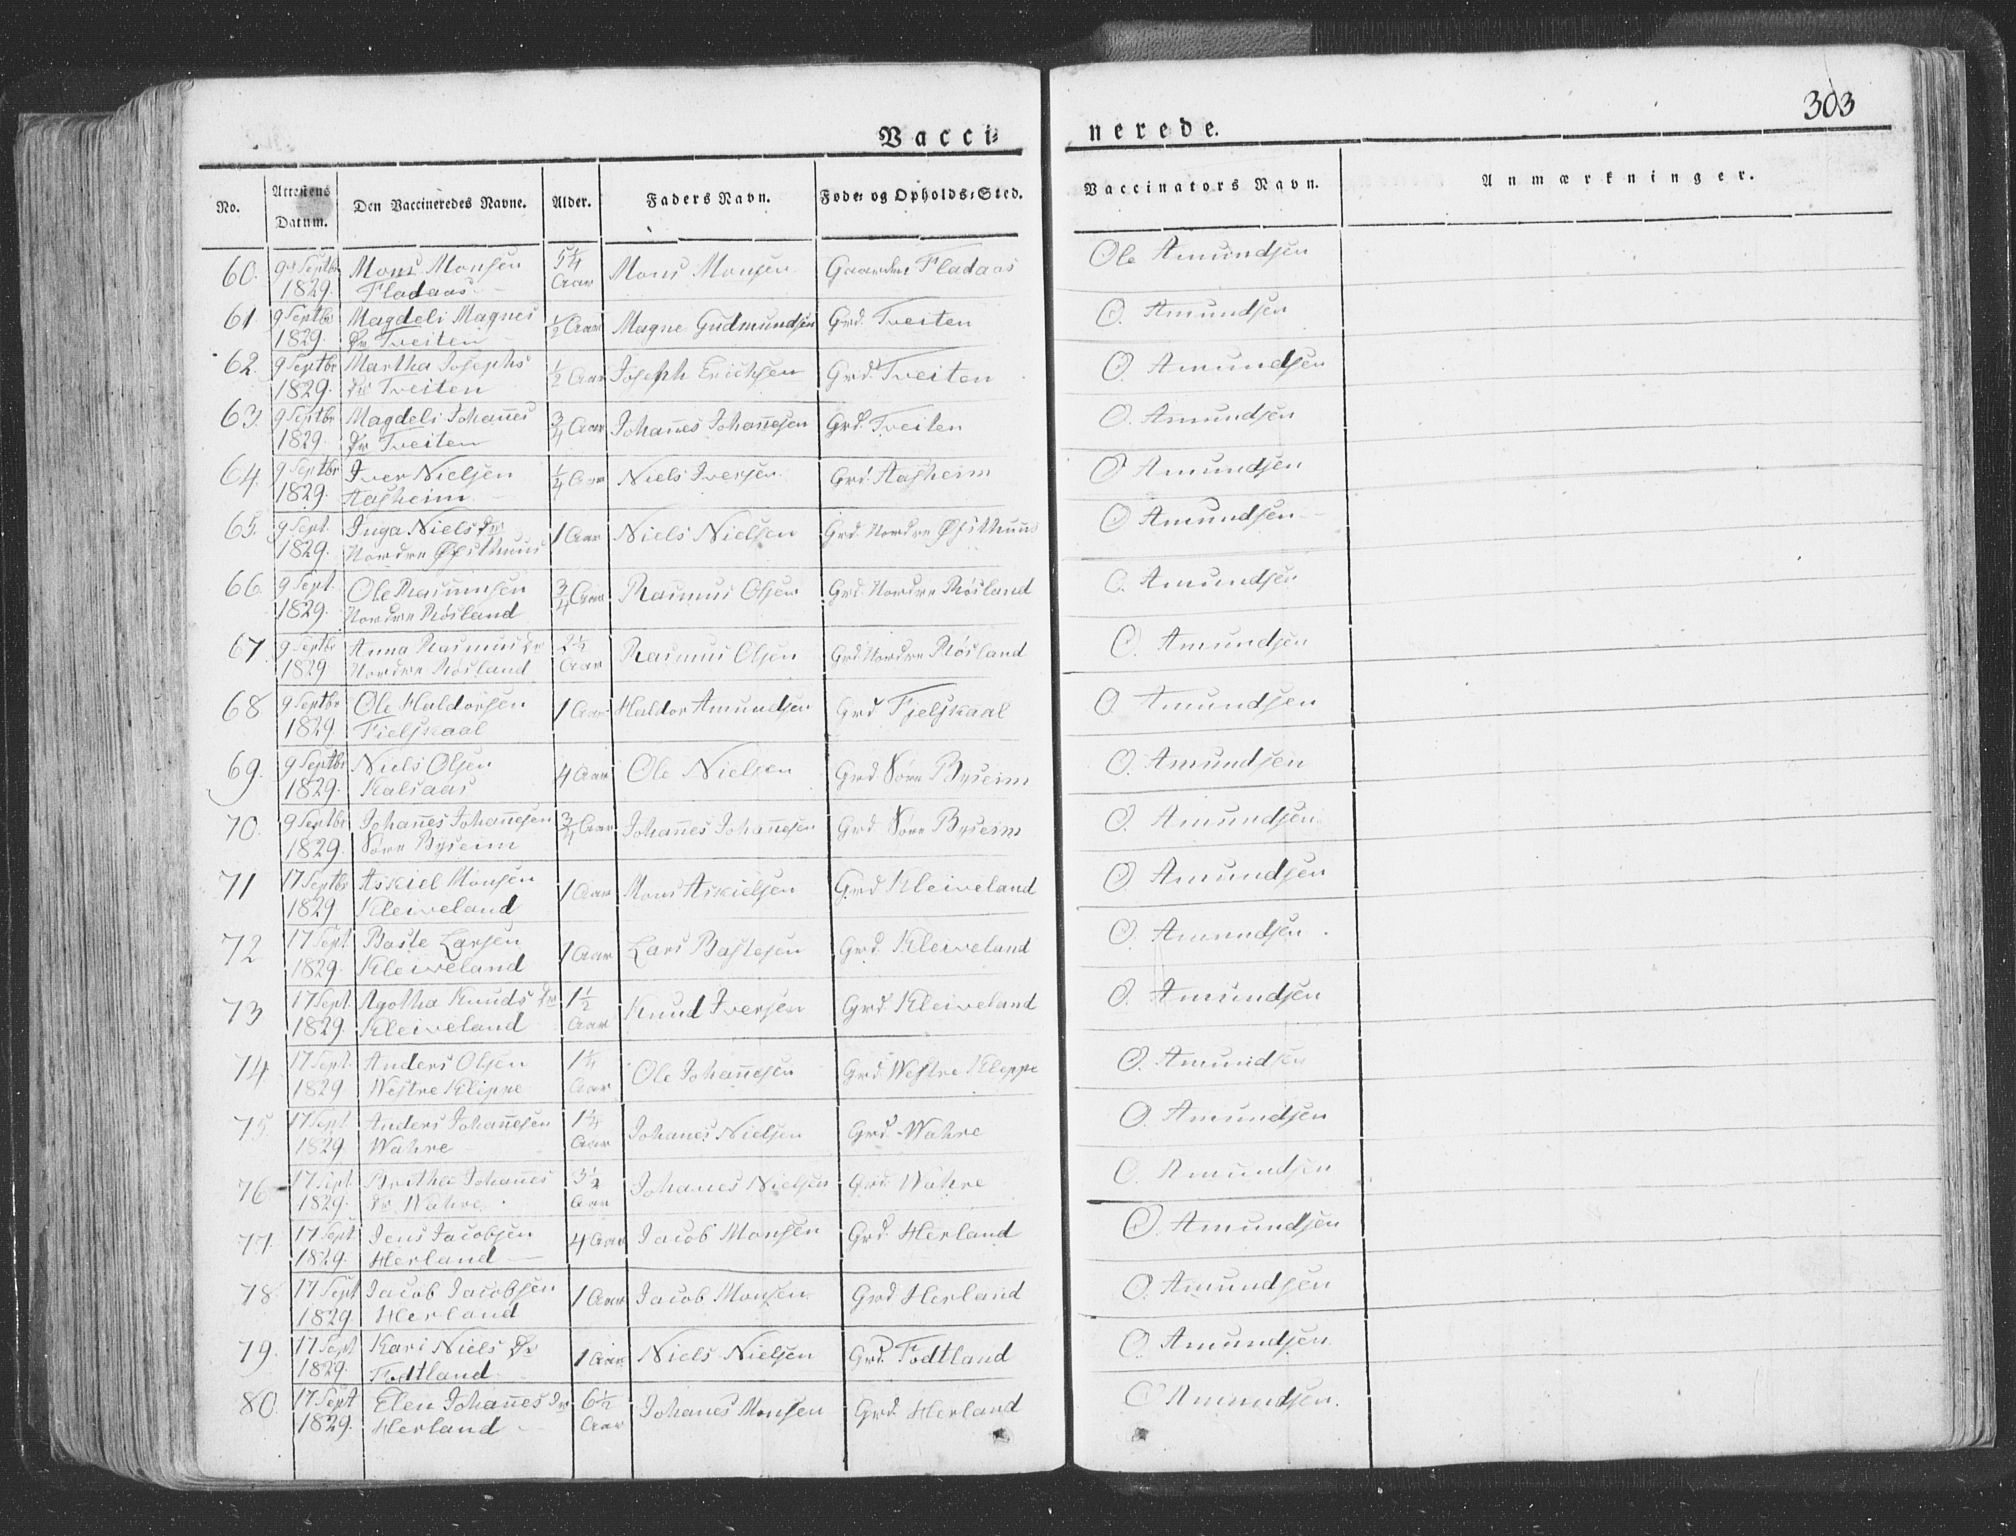 303
Vacci- nerede.
No. | Attestens Datum. | Den Vaccineredes Navne. | Alder. | Faders Navn. | Føde- og Opholds-Sted. | Vaccinators Navn. | Anmærkninger.
60. | 9de Septbr | Mons Monsen | 5 1/4 | Mons Monsen | Gaarden Fladaas | Ole Amundsen
1829. | Fladaas | Aar
61. | 9 Septbr | Magdeli Magnes | 1/2 Aar | Magne Gudmundsen | Grd. Tveiten | O. Amundsen
1829. | Dr Tveiten
62. | 9 Septbr | Martha Josephs | 1/2 Aar | Joseph Erichsen | Grd. Tveiten | O. Amundsen
1829. | Dr Tveiten
63. | 9 Septbr | Magdeli Johan̄es | 3/4 Aar | Johanes Johan̄esen | Grd. Tveiten | O. Amundsen
1829. | Dr Tveiten
64. | 9 Septbr | Iver Nielsen | 1/4 Aar | Niels Iversen | Grd. Aasheim | O Amundsen
1829. | Aasheim
65. | 9 Sept. | Inga Niels Dr | 1 Aar | Niels Nielsen | Grd. Nordre Øfsthuus | O Amundsen
1829. | Nordre Øfsthuus
66. | 9 Sept. | Ole Rasmusen | 3/4 Aar | Rasmus Olsen | Grd. Nordre Røsland | O. Amundsen
1829. | Nordre Røsland
67. | 9 Septbr | Anna Rasmus Dr | 2 1/4 | Rasmus Olsen | Grd Nordre Røsland | O. Amundsen
1829 | Nordre Røsland | Aar
68 | 9 Septbr | Ole Haldorsen | 1 Aar | Haldor Amundsen | Grd Fjelskaal | O. Amundsen
1829. | Fielskaal
69. | 9 Septbr | Niels Olsen | 4 Aar | Ole Nielsen | Grd Søre Byseim | O. Amundsen
1829. | Kalsaas
70. | 9 Septbr | Johan̄es Johan̄esen | 3/4 Aar | Johan̄es Johan̄esen | Grd Søre Byseim | O. Amundsen
1829. | Søre Byseim
71 | 17 Septbr | Askiel Monsen | 1 Aar | Mons Askielsen | Grd Kleiveland | O Amundsen
1829. | Kleiveland
72 | 17 Sept | Baste Larsen | 1 Aar | Lars Bastesen | Grd. Kleiveland | O. Amundsen
1829. | Kleiveland
73 | 17 Sept. | Agotha Knuds Dr | 1 1/2 | Knud Iversen | Grd Kleiveland | O. Amundsen
1829. | Kleiveland | Aar
74 | 17 Sept. | Anders Olsen | 1 1/4 | Ole Johan̄esen | Grd Westre Kleppe | O. Amundsen
1829 | Westre Kleppe | Aar
75 | 17 Sept | Anders Johan̄esen | 1 1/4 | Johanes Nielsen | Grd. Wahre | O. Amundsen
1829. | Wahre | Aar
76 | 17 Sept | Britha Johanes | 3 1/2 | Johanes Nielsen | Grd. Wahre | O. Amundsen
1829. | Dr Wahre. | Aar
77. | 17 Sept | Jens Jacobsen | 4 Aar | Jacob Monsen | Grd. Herland | O. Amundsen
1829. | Herland
78. | 17 Sept | Jacob Jacobsen | 1 Aar | Jacob Monsen | Grd Herland | O. Amundsen
1829. | Herland
79. | 17 Sept | Kari Niels Dr | 1 Aar | Niels Nielsen | Grd. Fodtland | O. Amundsen.
1829. | Fodtland
80. | 17 Sept | Elen Johan̄es Dr | 6 1/2 | Johanes Monsen | Grd. Herland | O Amundsen.
1829. | Herland | Aar